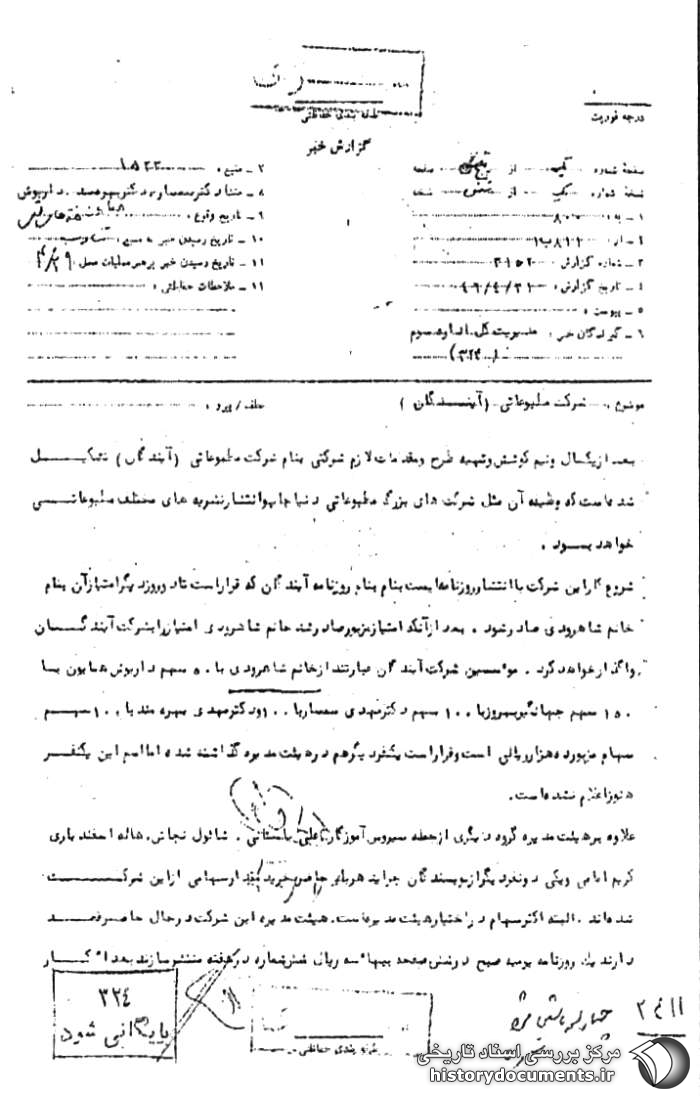 سری
طبقه بندی حفاظتی
درجه فوریت
گزارش خبر
صفحهٔ شماره یک از صفحه
نسخهٔ شماره یک از شش نسخه
۱ - به : ۸۰۰
۳ - شماره گزارش
۴ - تاریخ گزارش :
۵ - پیوست :
۶ - گیرندگان خبر : مدیریت کل اداره سوم
( ۳۲۴ )
۷ - منبع : ۱۵۲۲
۸ - منشاء دکتر سمسار، دکتر بهره مند، داریوش
همایون
۹ - تاریخ وقوع :
۱۰ - تاریخ رسیدن خبر به منبع :
۱۱ - تاریخ رسیدن خبر برهبر عملیات محل :
۱۱ - ملاحظات حفاظتی :
موضوع : شرکت مطبوعاتی (آیندگان )
عطف / پیرو :
بعد از یکسال ونیم کوشش وتهیه طرح ومقدمات لازم شرکتی بنام شرکت مطبوعاتی (آیندگان ) تشکیل
شده است که وظیفه آن مثل شرکت های بزرگ مطبوعاتی دنیا چاپ وانتشار نشریه های مختلف مطبوعاتی
خواهد بود .
شروع کار این شرکت با انتشار روزنامه ایست بنام بنام روزنامه آیندگان که قرار است تا دوروز دیگر امتیاز آن بنام
خانم شاهرودی صادر شود . بعد از آنکه امتیاز مزبور صادر شد خانم شاهرودی امتیاز را بشرکت آیندگان
واگذار خواهد کرد . موسسین شرکت آیندگان عبارتند از خانم شاهرودی با ۵۰ سهم داریوش همایون با
۱۵۰ سهم جهانگیر بهروز با ۱۰۰ سهم دکتر مهدی سمسار با ۱۰۰ ودکتر مهدی بهره مند با ۱۰۰ سهم
سهام مزبور ده هزار ریالی است وقرار است یکنفر دیگر هم در هیئت مدیره گذاشته شده اما اسم این یکنفر
هنوز اعلام نشده است.
علاوه بر هیئت مدیره گروه دیگری از جمله سیروس آموزگار، علی باستانی ، شائول نجاش، هاله اسفندیاری
کریم امامی ویکی دونفر دیگر از نویسندگان جراید هر یا بر حاضر بخرید مقدار سهامی از این شرکت
شده اند . البته اکثر سهام در اختیار هیئت مدیره است. هیئت مدیره این شرکت در حال حاضر قصد
دارند یک روزنامه یومیه صبح در شش صفحه ببهای سه ریال شش شماره در هفته منتشر سازند بعد از کار
۳۲۴
بایگانی شود
طبقه بندی حفاظتی
۲۴۱۱
مرکز بررسی اسناد تاریخی
historydocuments.ir